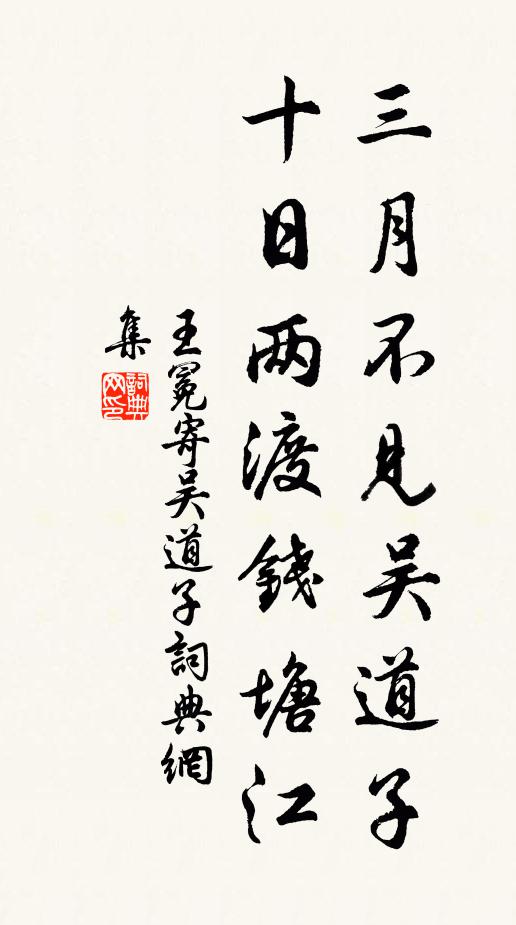 三月不见吴道子
十日两渡錢塘江
王冕寄吴道子詞典網
集
詞典
网印